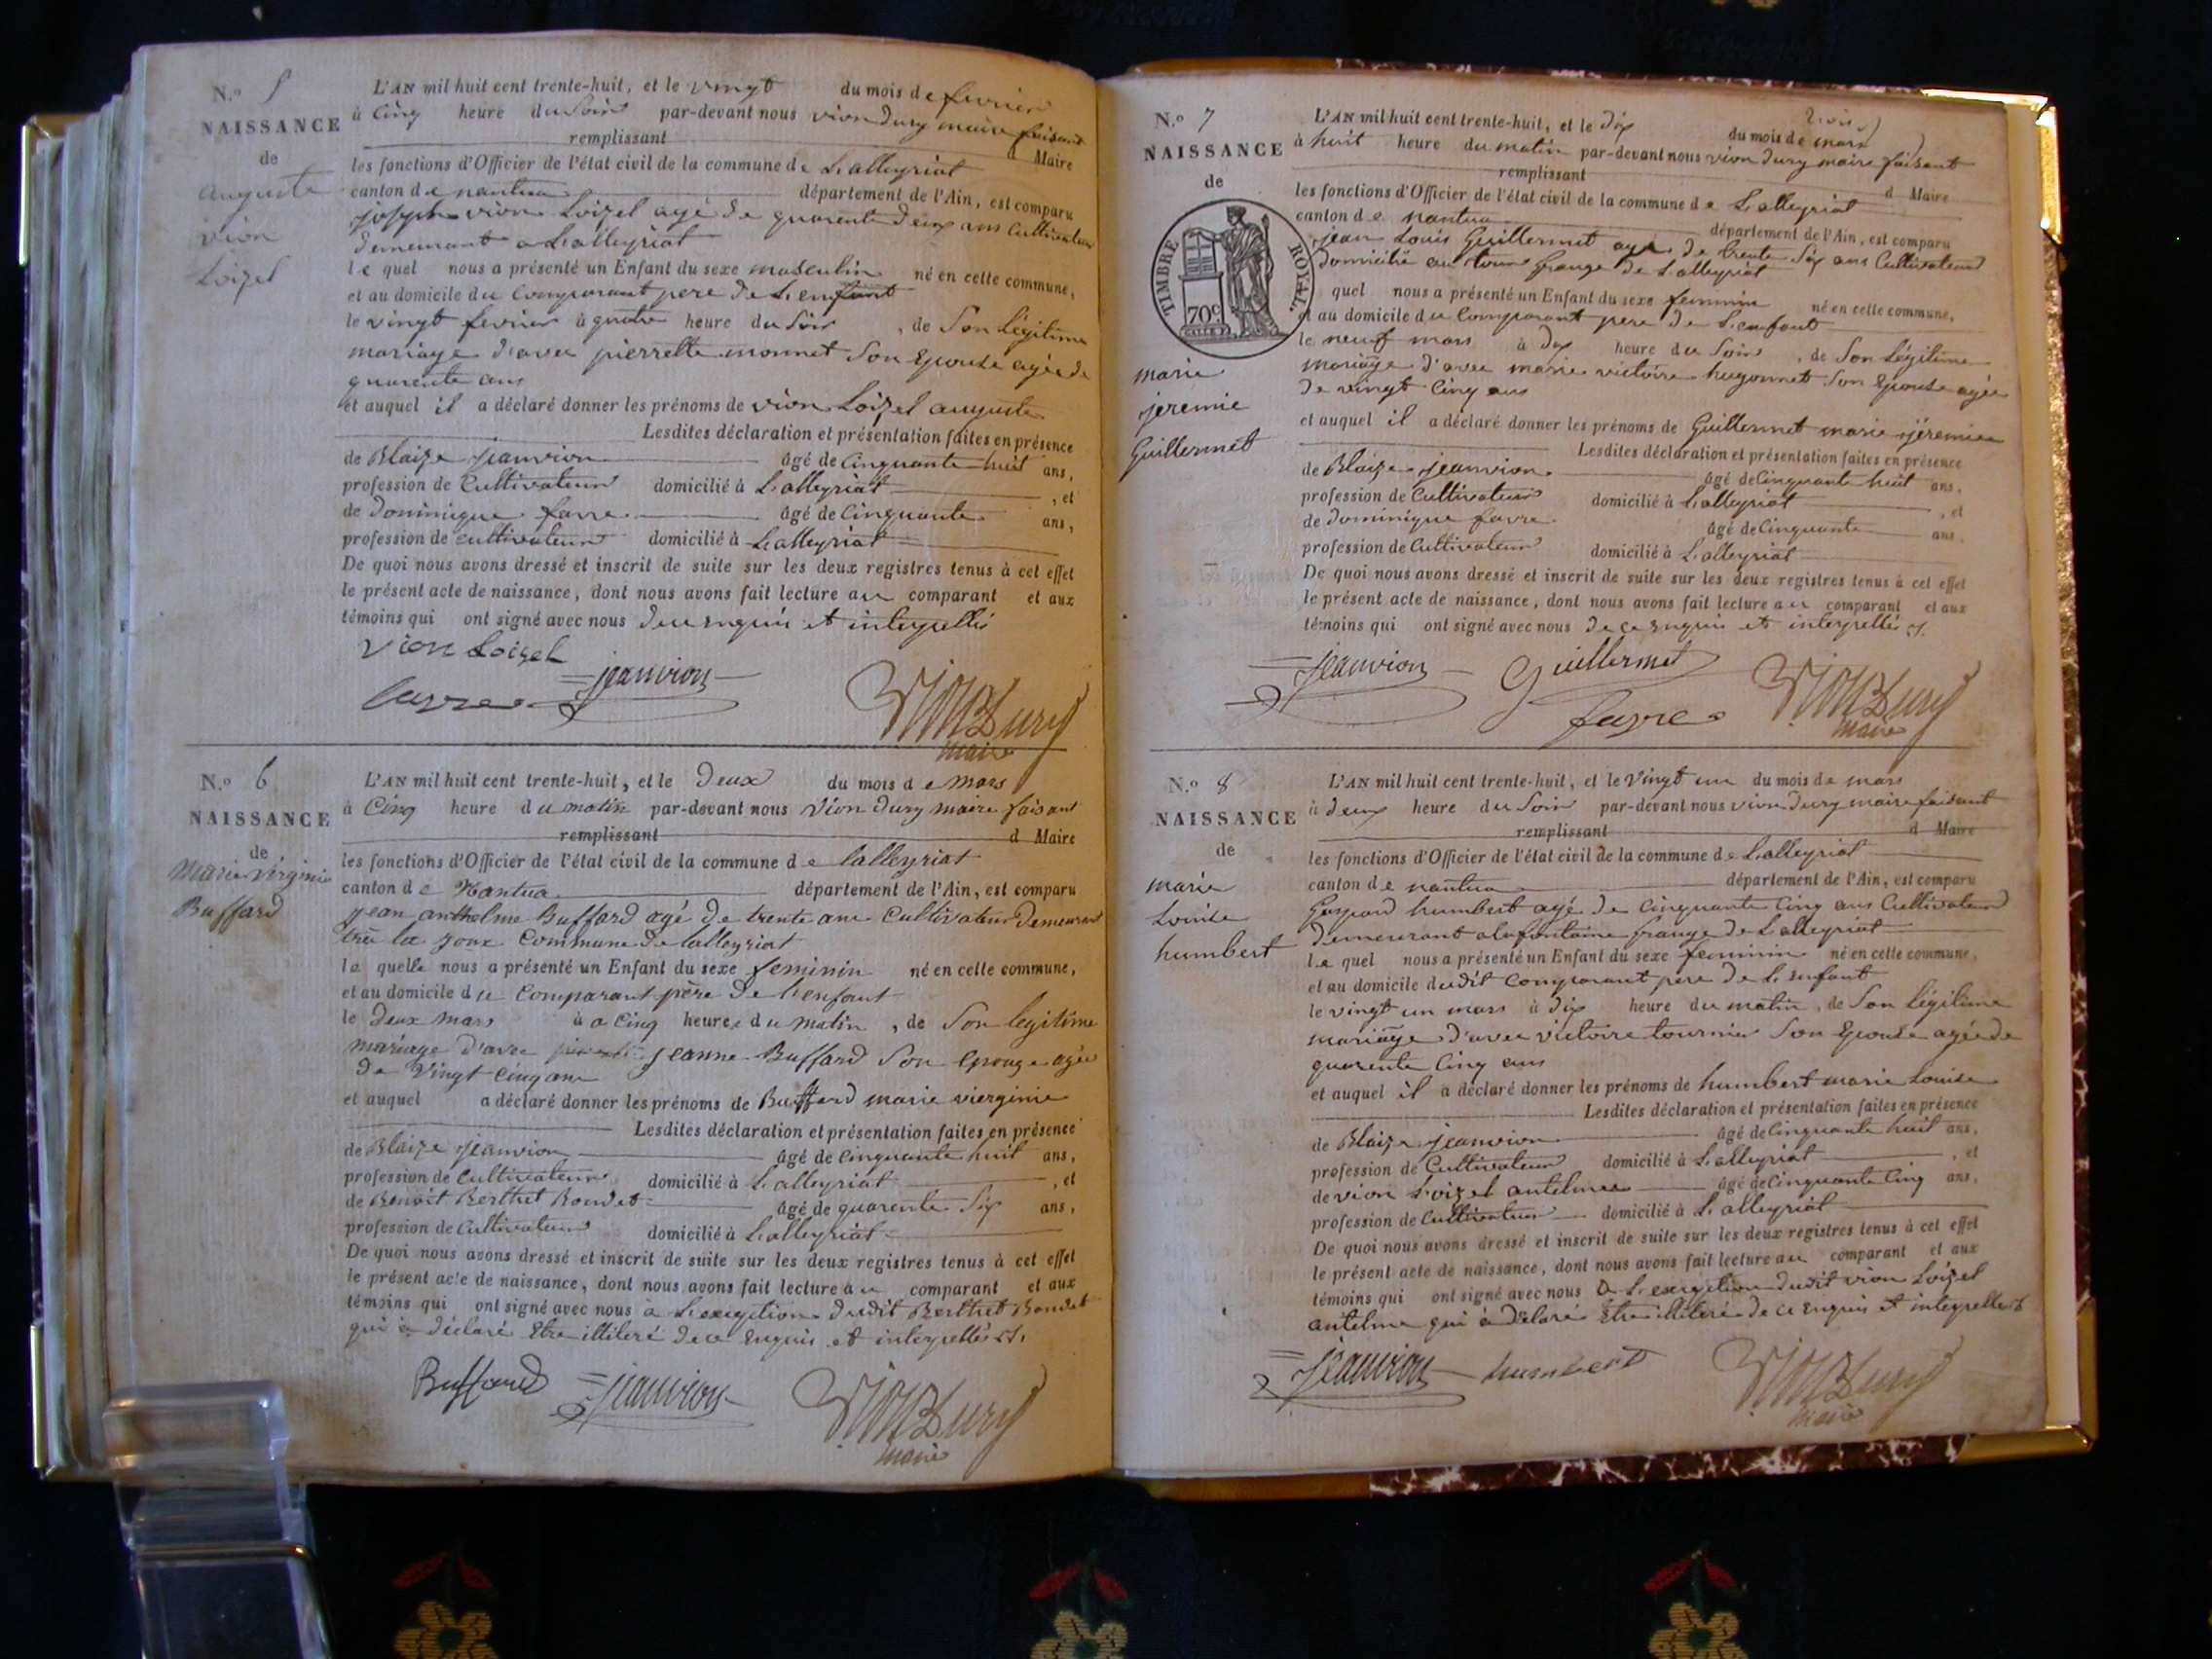 N.o 5
NAISSANCE
de
auguste
vion
Loizel
L'AN mil huit cent trente-huit, et le vingt du mois de fevrier
à cinq heure du Soir par-devant nous vion Dury maire faisant
remplissant d Maire
les fonctions d'Officier de l'état civil de la commune de Lalleyriat
canton de nantua département de l'Ain, est comparu
joseph vion Loizel agé de quarente deux ans Cultivateur
demeurant a Lalleyriat
le quel nous a présenté un Enfant du sexe masculin né en cette commune,
et au domicile du Comparant pere de L'enfant
le vingt fevrier à quatre heure du Soir, de Son Légitime
mariage d'avec pierrette monnet Son Epouse agée de
quarente ans
et auquel il a déclaré donner les prénoms de vion Loizel auguste
Lesdites déclaration et présentation faites en présence
de Blaize jeanvion âgé de Cinquante huit ans,
profession de Cultivateur domicilié à Lalleyriat, et
de Dominique favre âgé de Cinquante ans,
profession de cultivateur domicilié à Lalleyriat
De quoi nous avons dressé et inscrit de suite sur les deux registres tenus à cet effet
le présent acte de naissance, dont nous avons fait lecture au comparant et aux
témoins qui ont signé avec nous de ce enquis et interpellés
vion Loizel
favre jeanvion Vion Dury
maire
N.o 6
NAISSANCE
de
Marie virginie
Buffard
L'AN mil huit cent trente-huit, et le Deux du mois de Mars
à Cinq heure du matin par-devant nous Vion Dury maire faisant
remplissant d Maire
les fonctions d'Officier de l'état civil de la commune de lalleyriat
canton de Nantua département de l'Ain, est comparu
jean anthelme Buffard agé de trente ans Cultivateur Demeurant
la joux Commune de lalleyriat
le quelle nous a présenté un Enfant du sexe feminin né en cette commune,
et au domicile du Comparant père de l'enfant
le Deux mars à a Cinq heure du matin, de Son legitime
mariage d'avec jeanne Buffard Son Epouze agée
de Vingt Cinq ans
et auquel a déclaré donner les prénoms de Buffard marie vierginie
Lesdites déclaration et présentation faites en présence
de Blaize jeanvion âgé de Cinquante huit ans,
profession de Cultivateur domicilié à Lalleyriat, et
de Benoit Berthet Bondet âgé de quarente Six ans,
profession de Cultivateur domicilié à Lalleyriat
De quoi nous avons dressé et inscrit de suite sur les deux registres tenus à cet effet
le présent acte de naissance, dont nous avons fait lecture au comparant et aux
témoins qui ont signé avec nous a L'exception dudit Berthet Bondet
qui a déclaré Etre illiteré de ce Enquis et interpellés
Buffard jeanvion Vion Dury
maire
N.o 7
NAISSANCE
de
TIMBRE ROYAL.
70c
marie
jeremie
Guillermet
L'AN mil huit cent trente-huit, et le Dix du mois de mars
à huit heure du matin par-devant nous vion Dury maire faisant
remplissant d Maire
les fonctions d'Officier de l'état civil de la commune de Lalleyriat
canton de nantua département de l'Ain, est comparu
jean Louis Guillermet agé de trente Six ans Cultivateur
Domicilié au grange de Lalleyriat
quel nous a présenté un Enfant du sexe feminin né en cette commune,
et au domicile du Comparant pere de L'enfant
le neuf mars à Dix heure du Soir, de Son Légitime
mariage d'avec marie victoire hugonnet Son Epouse agée
de vingt Cinq ans
et auquel il a déclaré donner les prénoms de Guillermet marie jéremie
Lesdites déclaration et présentation faites en présence
de Blaize jeanvion âgé de Cinquante huit ans,
profession de Cultivateur domicilié à Lalleyriat, et
de Dominique favre âgé de Cinquante ans,
profession de Cultivateur domicilié à Lalleyriat
De quoi nous avons dressé et inscrit de suite sur les deux registres tenus à cet effet
le présent acte de naissance, dont nous avons fait lecture au comparant et aux
témoins qui ont signé avec nous de ce enquis et interpellés
jeanvion Guillermet Vion Dury
favre maire
N.o 8
NAISSANCE
de
marie
Louise
humbert
L'AN mil huit cent trente-huit, et le Vingt un du mois de mars
à deux heure du Soir par-devant nous vion Dury maire faisant
remplissant d Maire
les fonctions d'Officier de l'état civil de la commune de Lalleyriat
canton de nantua département de l'Ain, est comparu
Gaspard humbert agé de Cinquante Cinq ans Cultivateur
Demeurant a la fontaine grange de Lalleyriat
le quel nous a présenté un Enfant du sexe feminin né en cette commune,
et au domicile dudit Comparant pere de L'enfant
le vingt un mars à dix heure du matin, de Son Légitime
mariage d'avec victoire tournier Son Epouse agée de
quarente Cinq ans
et auquel il a déclaré donner les prénoms de humbert marie Louise
Lesdites déclaration et présentation faites en présence
de Blaize jeanvion âgé de Cinquante huit ans,
profession de Cultivateur domicilié à Lalleyriat, et
de vion Loizel antelme âgé de Cinquante Cinq ans,
profession de Cultivateur domicilié à Lalleyriat
De quoi nous avons dressé et inscrit de suite sur les deux registres tenus à cet effet
le présent acte de naissance, dont nous avons fait lecture au comparant et aux
témoins qui ont signé avec nous a L'exception dudit vion Loizel
antelme qui à Déclaré Etre illiteré de ce Enquis et interpellés
jeanvion humbert Vion Dury
maire